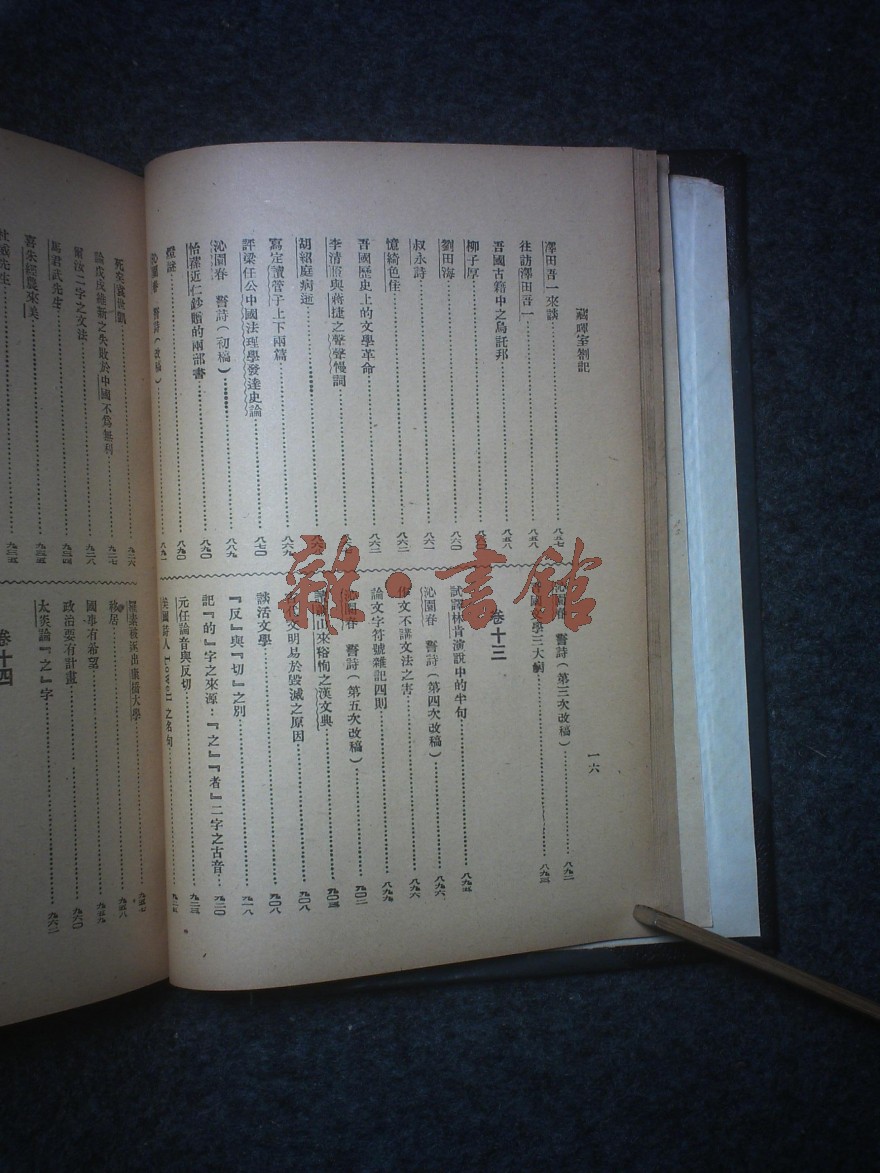 藏暉室劄記
一六
澤田吾一來談……八五七
往訪澤田吾一……八五八
吾國古籍中之烏託邦……八五八
柳子厚
劉田海……八六〇
叔永詩……八六一
憶綺色佳……八六二
吾國歷史上的文學革命……八六二
李清照與蔣捷之聲聲慢詞
胡紹庭病逝
寫定讀管子上下兩篇……八六九
評梁任公中國法理學發達史論……八七〇
沁園春 誓詩(初稿)……八八九
怡蓀近仁鈔贈的兩部書……八九〇
燈謎……八九〇
沁園春 誓詩(改稿)……八九一
沁園春 誓詩(第三次改稿)……八九二
文學三大病……八九三
卷十三
試譯林肯演說中的半句……八九五
沁園春 誓詩(第四次改稿)……八九六
作文不講文法之害……八九六
論文字符號雜記四則……八九九
沁園春 誓詩(第五次改稿)……九〇二
山來裕恂之漢文典……九〇三
文明易於毀滅之原因……九〇八
談活文學……九〇八
『反』與『切』之別……九一八
記『的』字之來源:『之』『者』二字之古音……九二〇
元任論音與反切……九二三
美國詩人 Lowell 之名句
論戊戌維新之失敗於中國不爲無利……九二七
爾汝二字之文法……九二八
馬君武先生……九三四
喜朱經農來美……九三五
杜威先生
羅素被逐出康橋大學……九五七
移居……九五八
國事有希望……九五九
政治要有計畫……九六〇
太炎論『之』字……九六二
卷十四
雜·書館